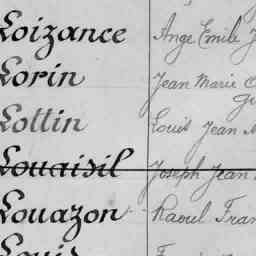 Loizance Ange Emile J
Lorin Jean Marie
Lottin Louis Jean M
Louaisil Joseph Jean
Louazon Raoul Fran
Louis